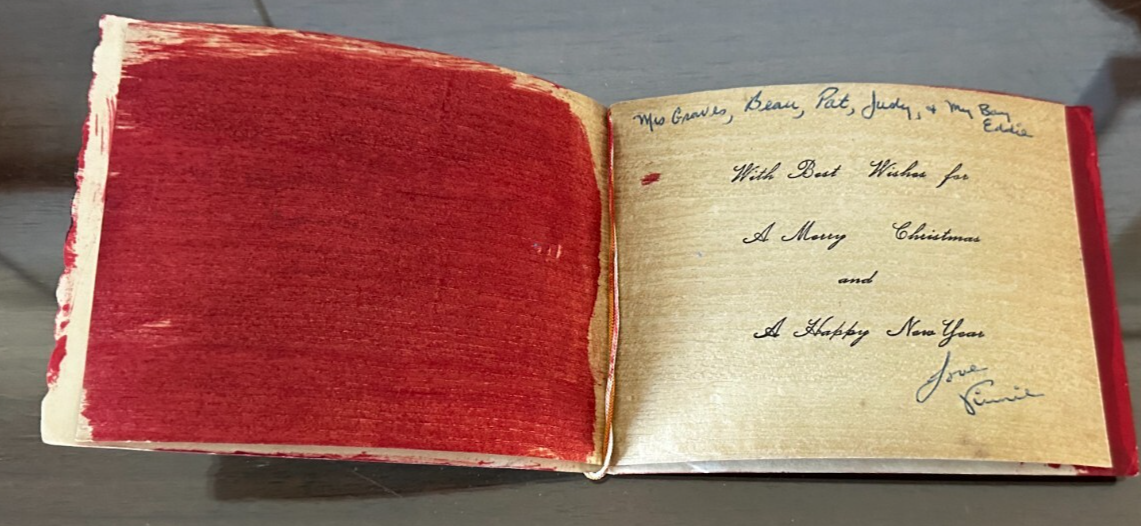 Mrs Graves, Beau, Pat, Judy, + My Boy
Eddie
With Best Wishes for
A Merry Christmas
and
A Happy New Year
Love